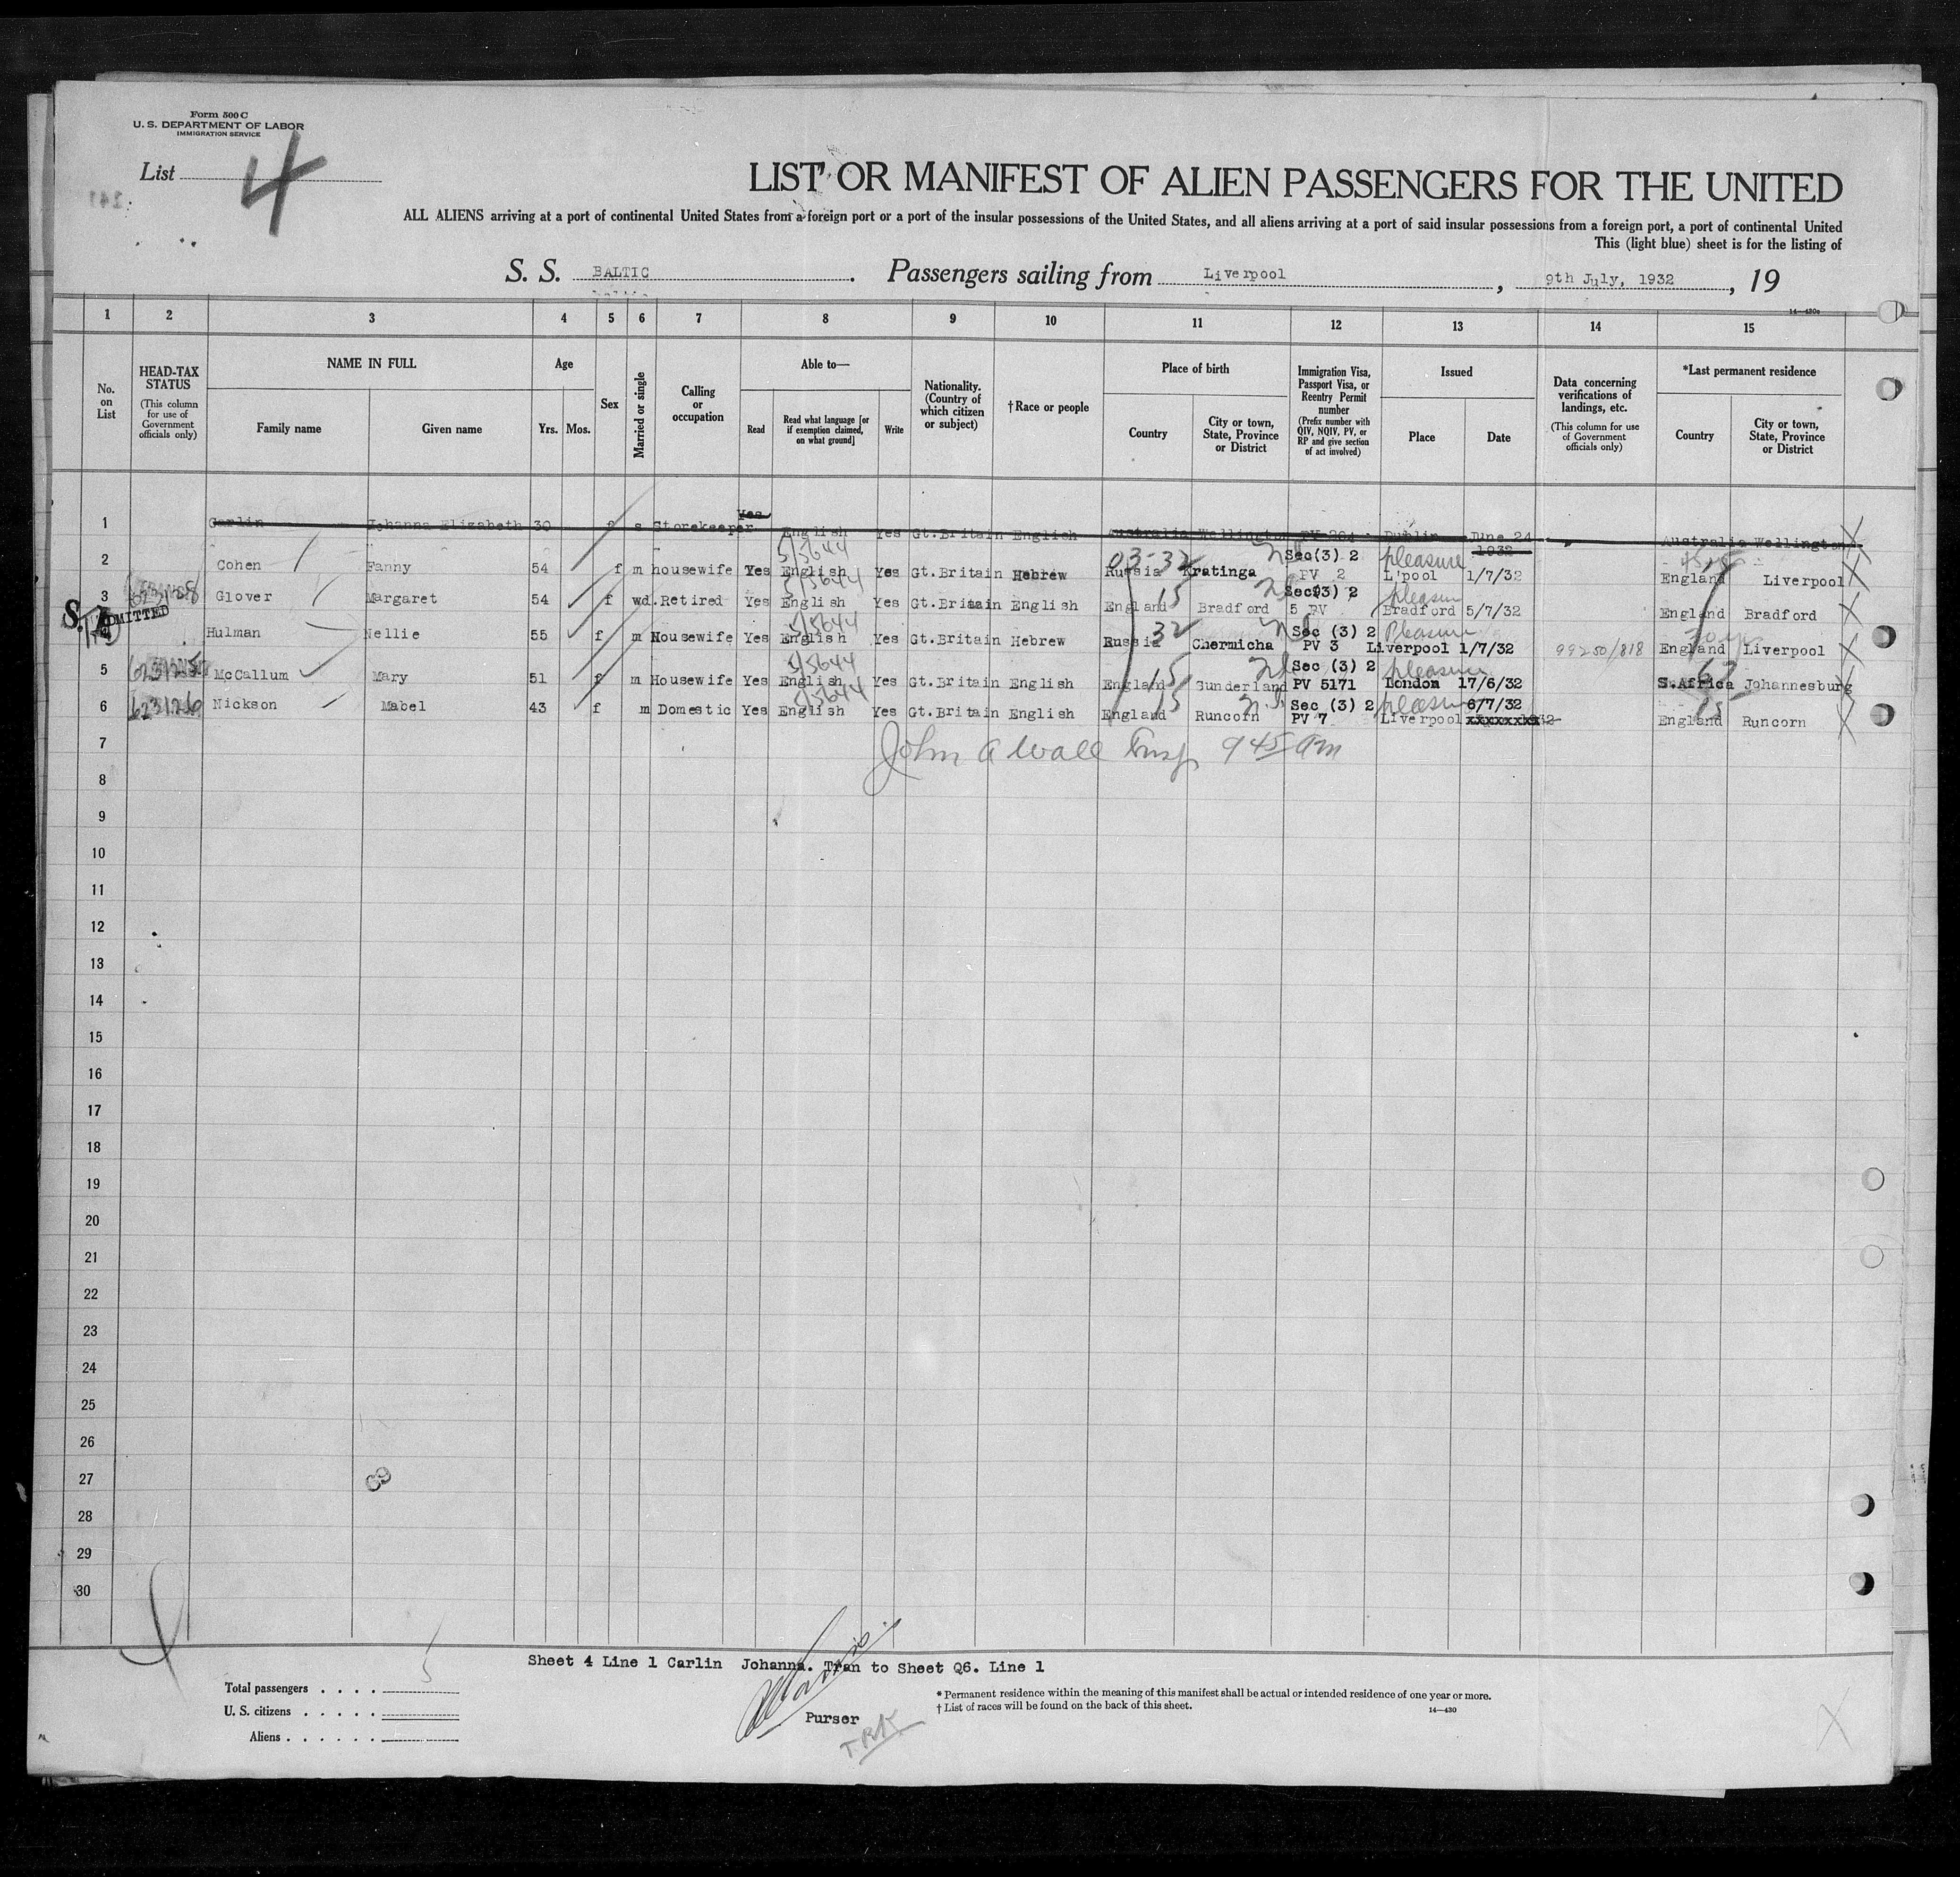 Form 500 C
U. S. DEPARTMENT OF LABOR
IMMIGRATION SERVICE
List 4
LIST OR MANIFEST OF ALIEN PASSENGERS FOR THE UNITED
ALL ALIENS arriving at a port of continental United States from a foreign port or a port of the insular possessions of the United States, and all aliens arriving at a port of said insular possessions from a foreign port, a port of continental United
This (light blue) sheet is for the listing of
S. S. BALTIC. Passengers sailing from Liverpool, 9th July, 1932, 19
14—430c
1 2 3 4 5 6 7 8 9 10 11 12 13 14 15
No. on List
HEAD-TAX STATUS (This column for use of Government officials only)
NAME IN FULL
Family name
Given name
Age
Yrs. Mos.
Sex
Married or single
Calling or occupation
Able to—
Read
Read what language [or if exemption claimed, on what ground]
Write
Nationality. (Country of which citizen or subject)
†Race or people
Place of birth
Country
City or town, State, Province or District
Immigration Visa, Passport Visa, or Reentry Permit number (Prefix number with QIV, NQIV, PV, or RP and give section of act involved)
Issued
Place
Date
Data concerning verifications of landings, etc. (This column for use of Government officials only)
*Last permanent residence
Country
City or town, State, Province or District
1 Carlin Johanna Elizabeth 30 f s Storekeeper Yes English Yes Gt.Britain English Australia Wellington PV 204 Dublin June 24 1932 Australia Wellington
2 Cohen Fanny 54 f m housewife Yes English Yes Gt.Britain Hebrew Russia Kratinga Sec(3) 2 PV 2 pleasure L'pool 1/7/32 England Liverpool
3 Glover Margaret 54 f wd. Retired Yes English Yes Gt.Britain English England Bradford Sec(3) 2 5 PV Bradford 5/7/32 England Bradford
ADMITTED
Hulman Nellie 55 f m Housewife Yes English Yes Gt.Britain Hebrew Russia 32 Chermicha Sec (3) 2 PV 3 Pleasure Liverpool 1/7/32 99250/818 England Liverpool
5 McCallum Mary 51 f m Housewife Yes English Yes Gt.Britain English England 15 Sunderland Sec (3) 2 PV 5171 pleasure London 17/6/32 S.Africa Johannesburg
6 623126 Nickson Mabel 43 f m Domestic Yes English Yes Gt.Britain English England 15 Runcorn Sec (3) 2 PV 7 Liverpool 6/7/32 England Runcorn
7 John A Wall Insp 9 45 am
8
9
10
11
12
13
14
15
16
17
18
19
20
21
22
23
24
25
26
27
28
29
30
Sheet 4 Line 1 Carlin Johanna. Tran to Sheet Q6. Line 1
Total passengers . . . . 5
U. S. citizens . . . . .
Aliens . . . . . .
Purser
* Permanent residence within the meaning of this manifest shall be actual or intended residence of one year or more.
† List of races will be found on the back of this sheet.
14—430